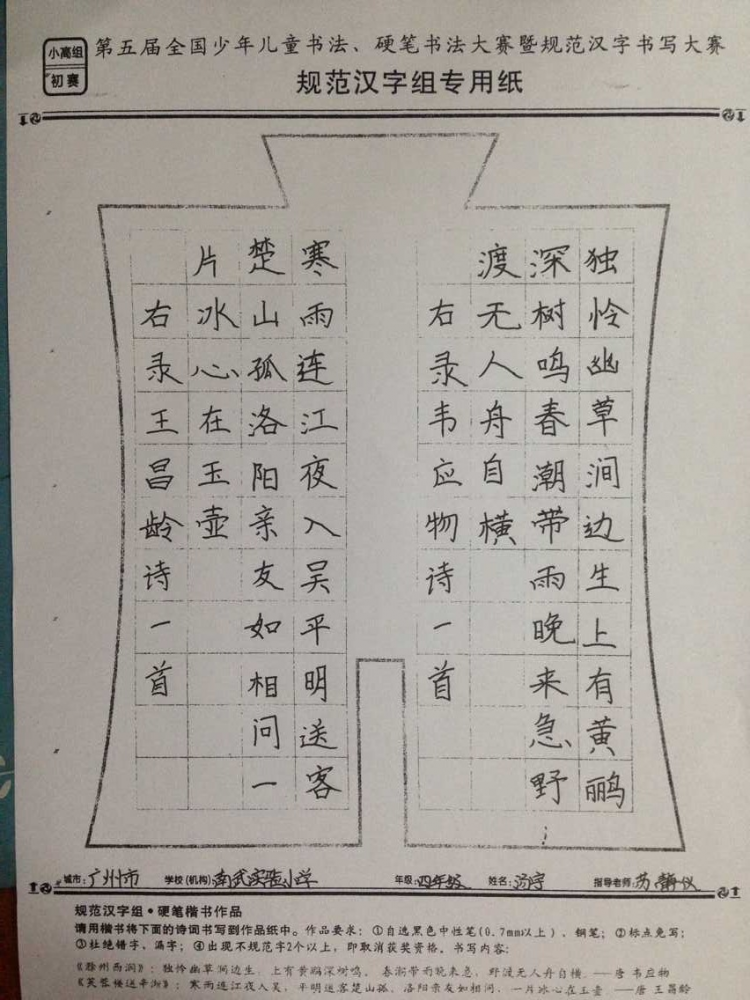 小高组
初赛
第五届全国少年儿童书法、硬笔书法大赛暨规范汉字书写大赛
规范汉字组专用纸
独怜幽草涧边生上有黄鹂
深树鸣春潮带雨晚来急野
渡无人舟自横
右录韦应物诗一首
寒雨连江夜入吴平明送客
楚山孤洛阳亲友如相问一
片冰心在玉壶
右录王昌龄诗一首
城市:广州市 学校(机构):南武实验小学 年级:四年级 姓名: 指导老师:苏静仪
规范汉字组·硬笔楷书作品
请用楷书将下面的诗词书写到作品纸中。作品要求:①自选黑色中性笔(0.7mm以上)、钢笔;②标点免写;
③杜绝错字、漏字;④出现不规范字2个以上,即取消获奖资格。书写内容:
《滁州西涧》:独怜幽草涧边生,上有黄鹂深树鸣。春潮带雨晚来急,野渡无人舟自横。——唐 韦应物
《芙蓉楼送辛渐》:寒雨连江夜入吴,平明送客楚山孤。洛阳亲友如相问,一片冰心在玉壶。——唐 王昌龄